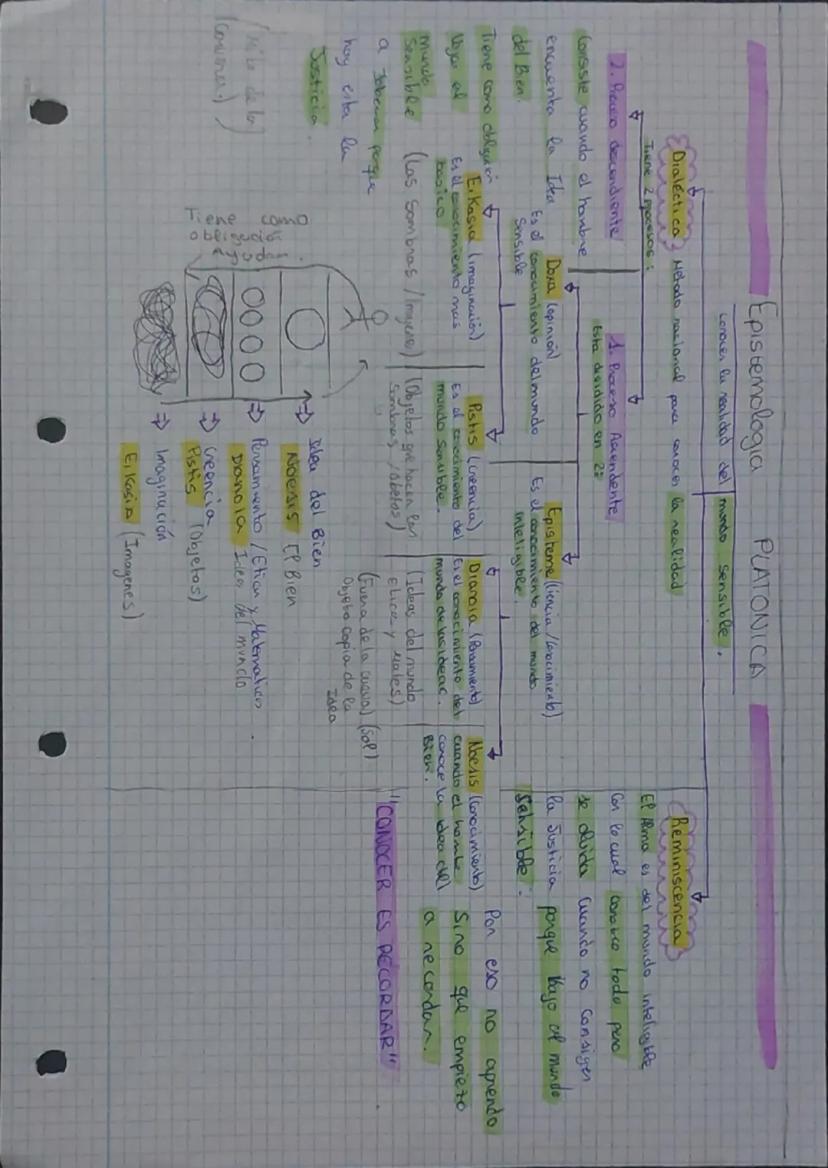 Epistemología PLATONICA
conocer la realidad del mundo sensible.
Dialéctica Método racional para conocer la realidad
Tiene 2 procesos:
2. Proceso descendiente
consiste cuando el hombre
encuentra la Idea
del Bien.
Tiene como obligación
bajar al
mundo
sensible
a gobernar porque
hay esta la
Justicia.
(mito de la
caverna)
1. Proceso Ascendente
Esta dividido en 2:
Doxa (opinión)
Es el conocimiento del mundo
sensible
Episteme (Ciencia/Conocimiento)
Es el conocimiento del mundo
inteligible.
Eikasia (imaginación)
Es el conocimiento mas
basico
(Las sombras / Imagenes)
Pistis (creencia)
Es el conocimiento del
mundo sensible.
(Objetos que hacen las
sombras, objetos)
Dianoia (Pensamiento)
Es el conocimiento del
mundo de las ideas.
(Ideas del mundo
Etica y Mates)
(Fuera de la cueva) (Sol)
Objeto copia de la
Idea
Noesis (conocimiento)
cuando el hombre
conoce la idea del
Bien.
Reminiscencia
El Alma es del mundo inteligible
Con lo cual conozco todo pero
se olvida cuando no consigues
la Justicia porque bajo al mundo
sensible.
Por eso no aprendo
Sino que empiezo
a recordar.
"CONOCER ES RECORDAR"
Tiene como
obligación
ayudar.
⇒ Idea del Bien
Noesis El Bien
⇒ Pensamiento / Etica y Matematicas.
Dianoia Ideas del mundo
⇒ Creencia
Pistis (Objetos)
⇒ Imaginación
Eikasia (Imagenes)